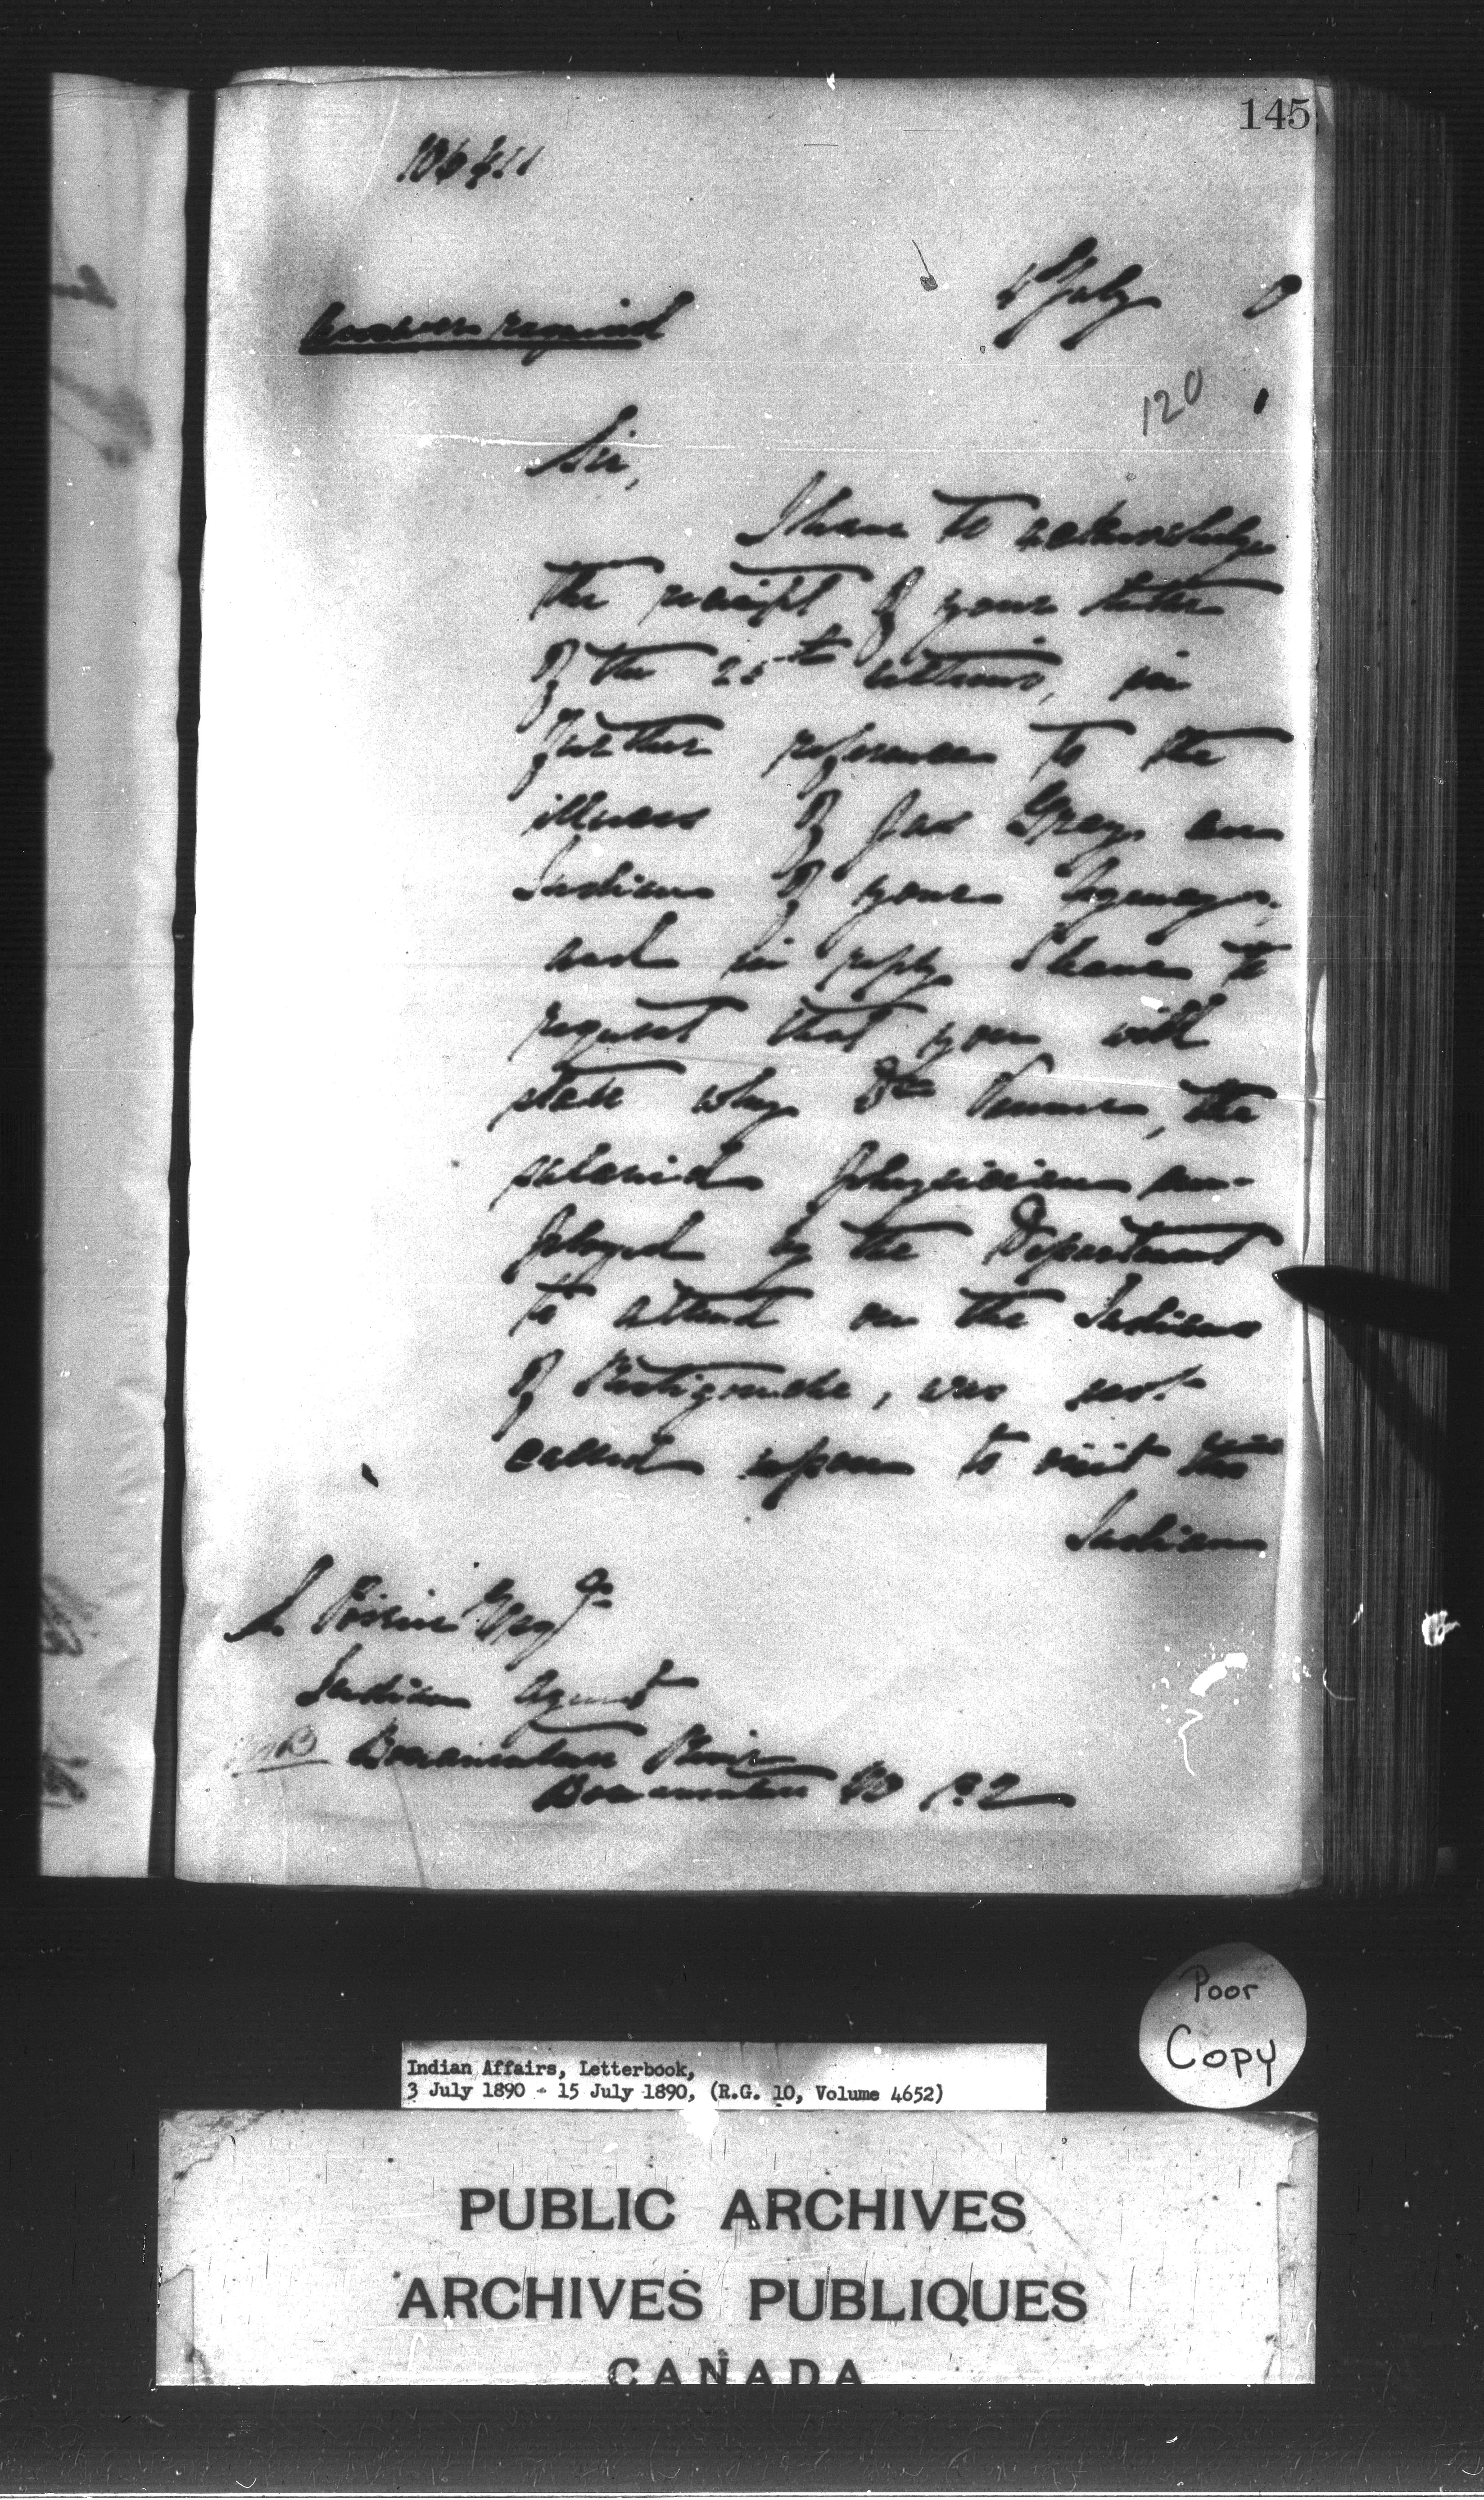 145
106411
4 July 0
Answer required
120 1
Sir,
I have to acknowledge
the receipt of your letter
of the 25th ultimo, in
further reference to the
illness of Jas Gray an
Indian of your Agency,
and in reply I have to
request that you will
state why Dr Venner, the
salaried physician em-
ployed by the Department
to attend on the Indians
of Restigouche, was not
called upon to visit this
Indian
L. Poirier Esqr
Indian Agent
Bonaventure River
Bonaventure Co P.Q
Poor
Copy
Indian Affairs, Letterbook,
3 July 1890 - 15 July 1890, (R.G. 10, Volume 4652)
PUBLIC ARCHIVES
ARCHIVES PUBLIQUES
CANADA